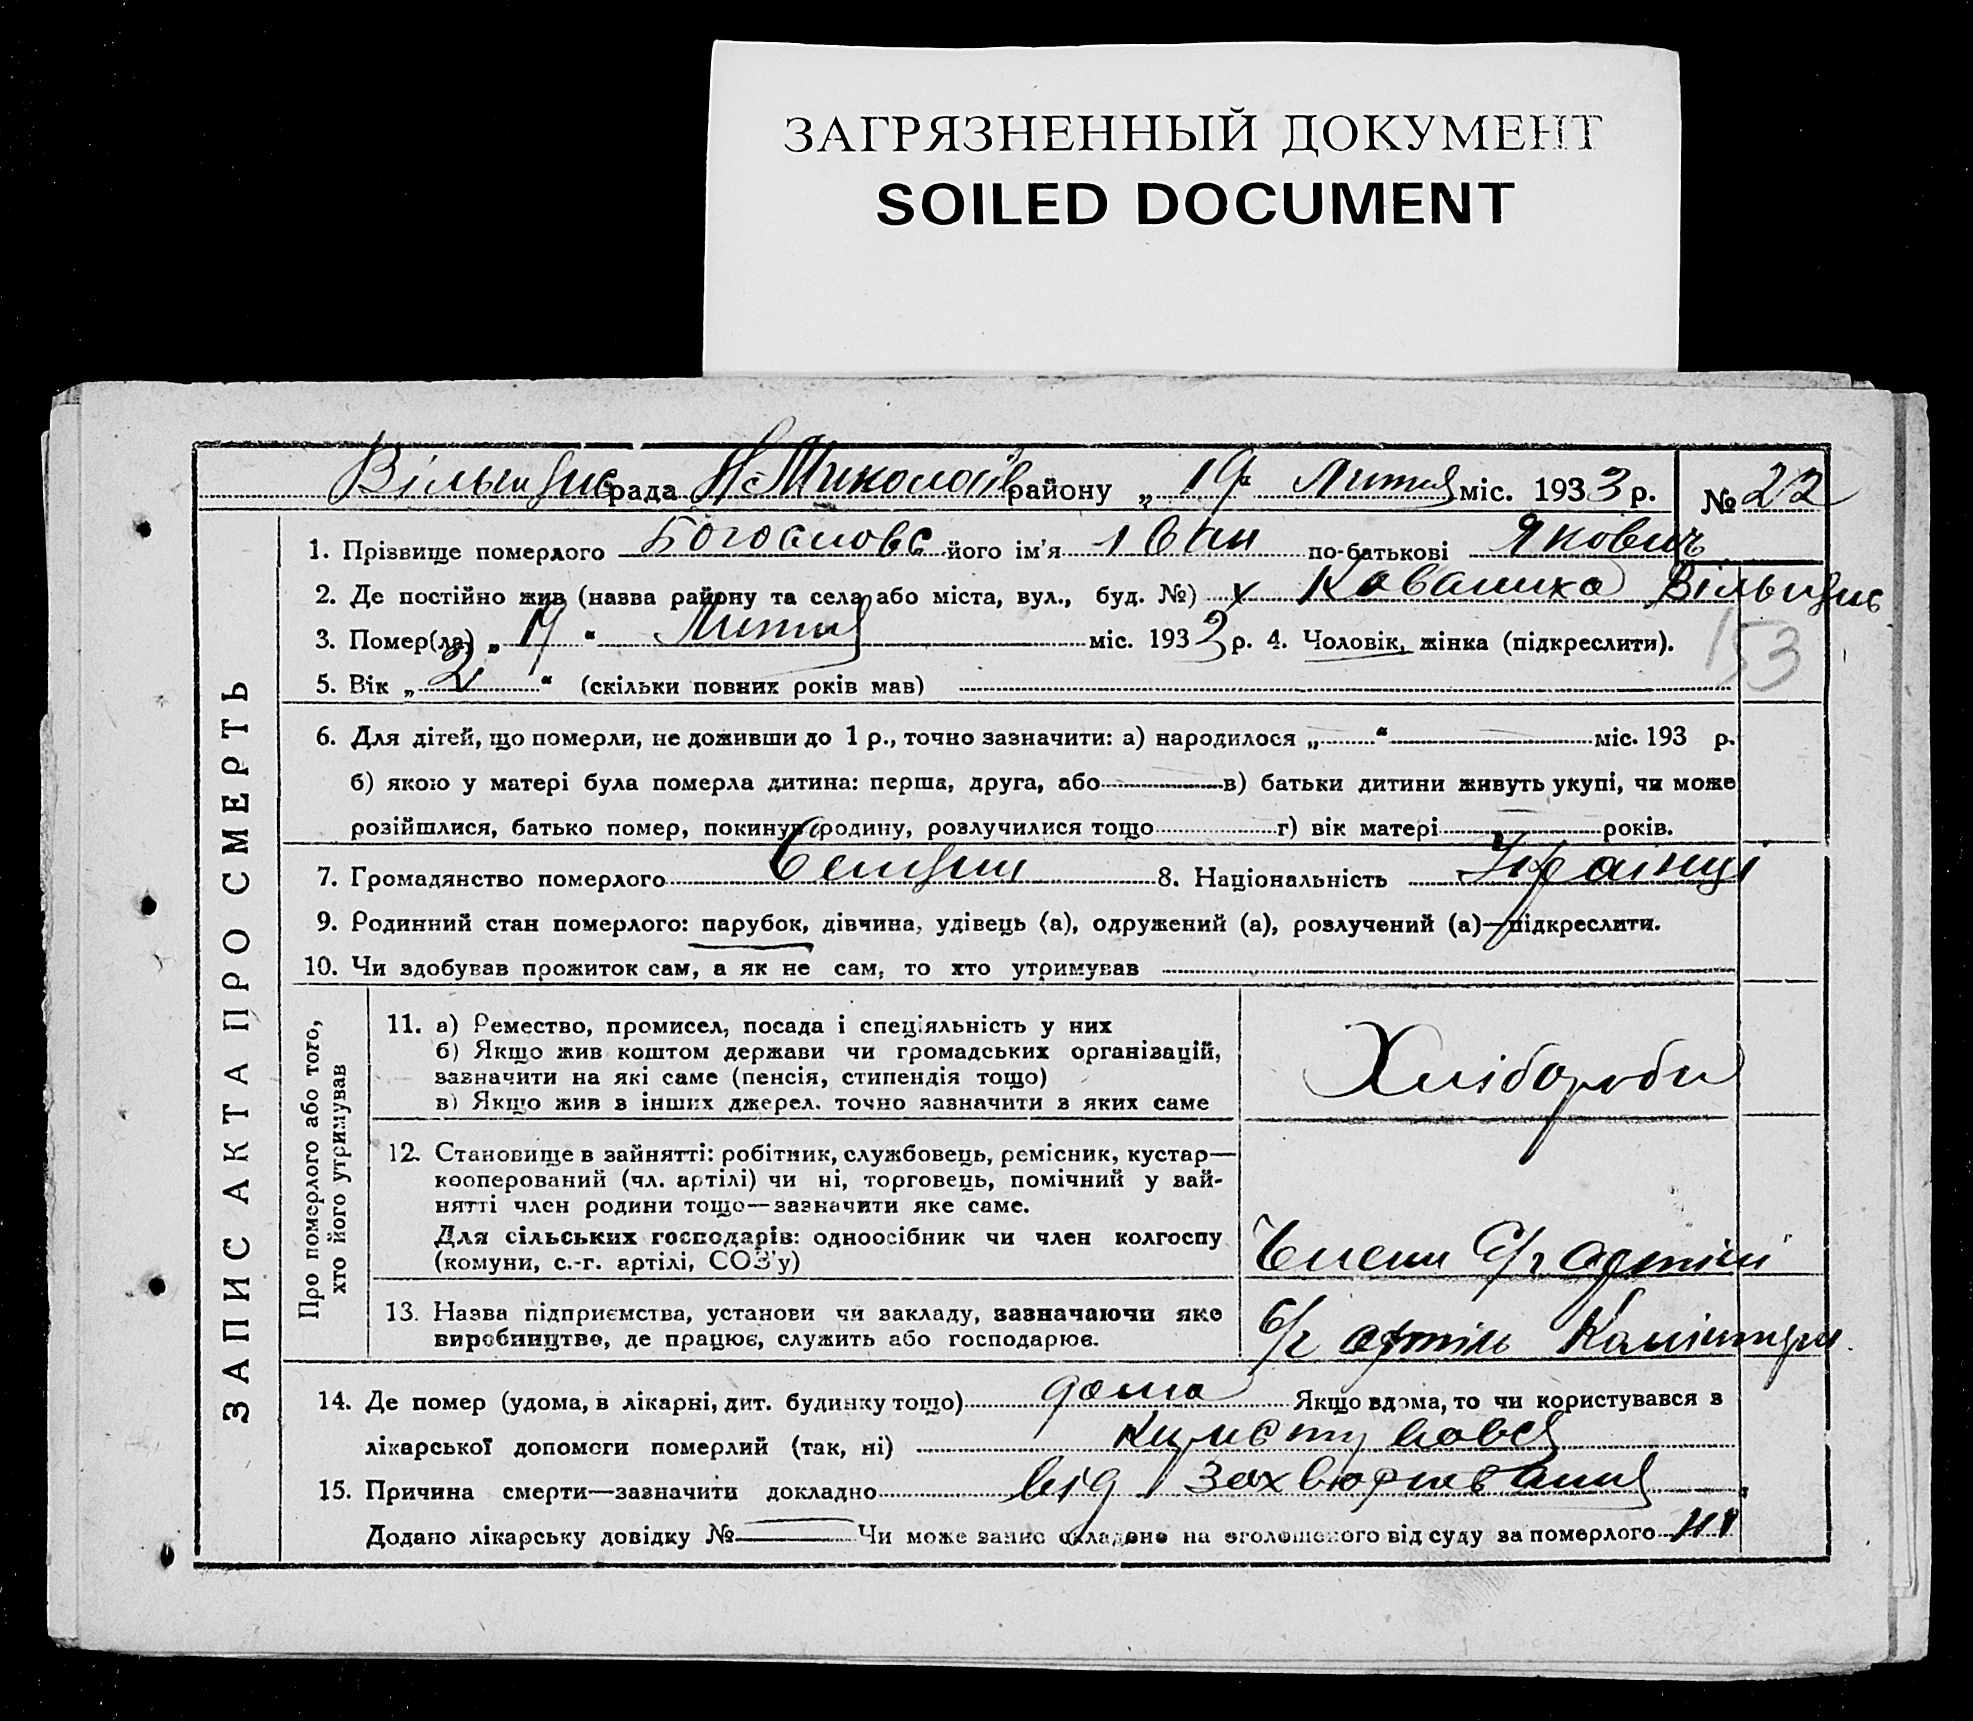 ЗАГРЯЗНЕННЫЙ ДОКУМЕНТ
SOILED DOCUMENT
рада Н-Миколаїв району „ 19 Лютня міс. 1933 р. № 22
1. Прізвище померлого його ім'я Іван по-батькові Якович
2. Де постійно жив (назва району та села або міста, вул., буд. №) х
3. Помер(ла) „ 17 “ Лютня міс. 1933 р. 4. Чоловік, жінка (підкреслити).
153
5. Вік „ 2 “ (скільки повних років мав)
6. Для дітей, що померли, не доживши до 1 р., точно зазначити: а) народилося „ “ міс. 193 р.
б) якою у матері була померла дитина: перша, друга, або в) батьки дитини живуть укупі, чи може
розійшлися, батько помер, покинув родину, розлучилися тощо г) вік матері років.
7. Громадянство померлого 8. Національність Українці
9. Родинний стан померлого: парубок, дівчина, удівець (а), одружений (а), розлучений (а)—підкреслити.
10. Чи здобував прожиток сам, а як не сам, то хто утримував
ЗАПИС АКТА ПРО СМЕРТЬ
Про померлого або того,
хто його утримував
11. а) Ремество, промисел, посада і спеціяльність у них
б) Якщо жив коштом держави чи громадських організацій,
зазначити на які саме (пенсія, стипендія тощо)
в) Якщо жив з інших джерел. точно зазначити з яких саме
Хлібороби
12. Становище в зайнятті: робітник, службовець, ремісник, кустар—
кооперований (чл. артілі) чи ні, торговець, помічний у зай-
нятті член родини тощо—зазначити яке саме.
Для сільських господарів: одноосібник чи член колгоспу
(комуни, с.-г. артілі, СОЗ'у)
Члени С/г артілі
13. Назва підприємства, установи чи закладу, зазначаючи яке
виробництво, де працює, служить або господарює.
С/г артіль Комінтерн
14. Де помер (удома, в лікарні, дит. будинку тощо) дома Якщо вдома, то чи користувався з
лікарської допомоги померлий (так, ні)
15. Причина смерти—зазначити докладно від захворювання
Додано лікарську довідку № — Чи може запис складено на оголошеного від суду за померлого ні